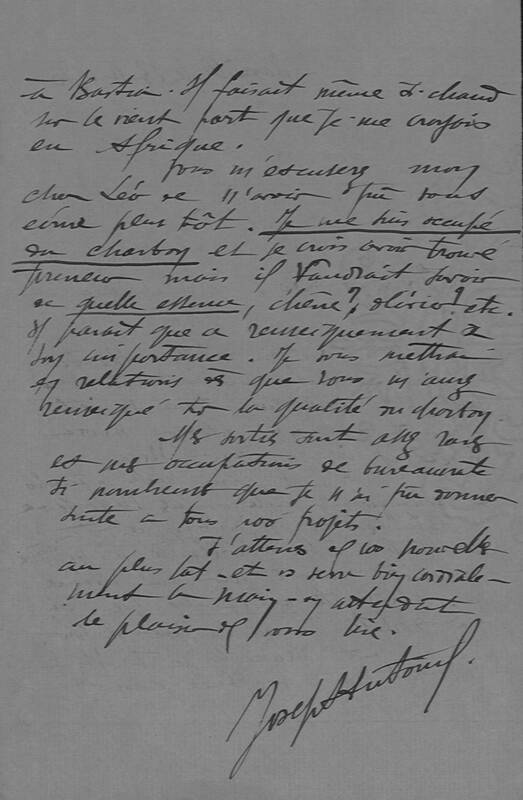 à Bastia. Il faisait même si chaud
sur le vieux port que je me croyais
en Afrique.
Vous m'excuserez mon
cher Léo de n'avoir pu vous
écrire plus tôt. Je me suis occupé
du charbon et je crois avoir trouvé
preneur mais il faudrait savoir
de quelle essence, chêne?, olivier? etc.
Il parait que ce renseignement a
son importance. Je vous mettrai
en relations dès que vous m'aurez
renseigné sur la qualité du charbon.
Mes sorties sont assez rares
et mes occupations de bureaucrate
si nombreuses que je n'ai pu donner
suite à tous nos projets.
J'attends de vos nouvelles
au plus tôt - et vs serre bien cordiale-
ment la main - en attendant
le plaisir de vous lire.
Joseph Antoni.